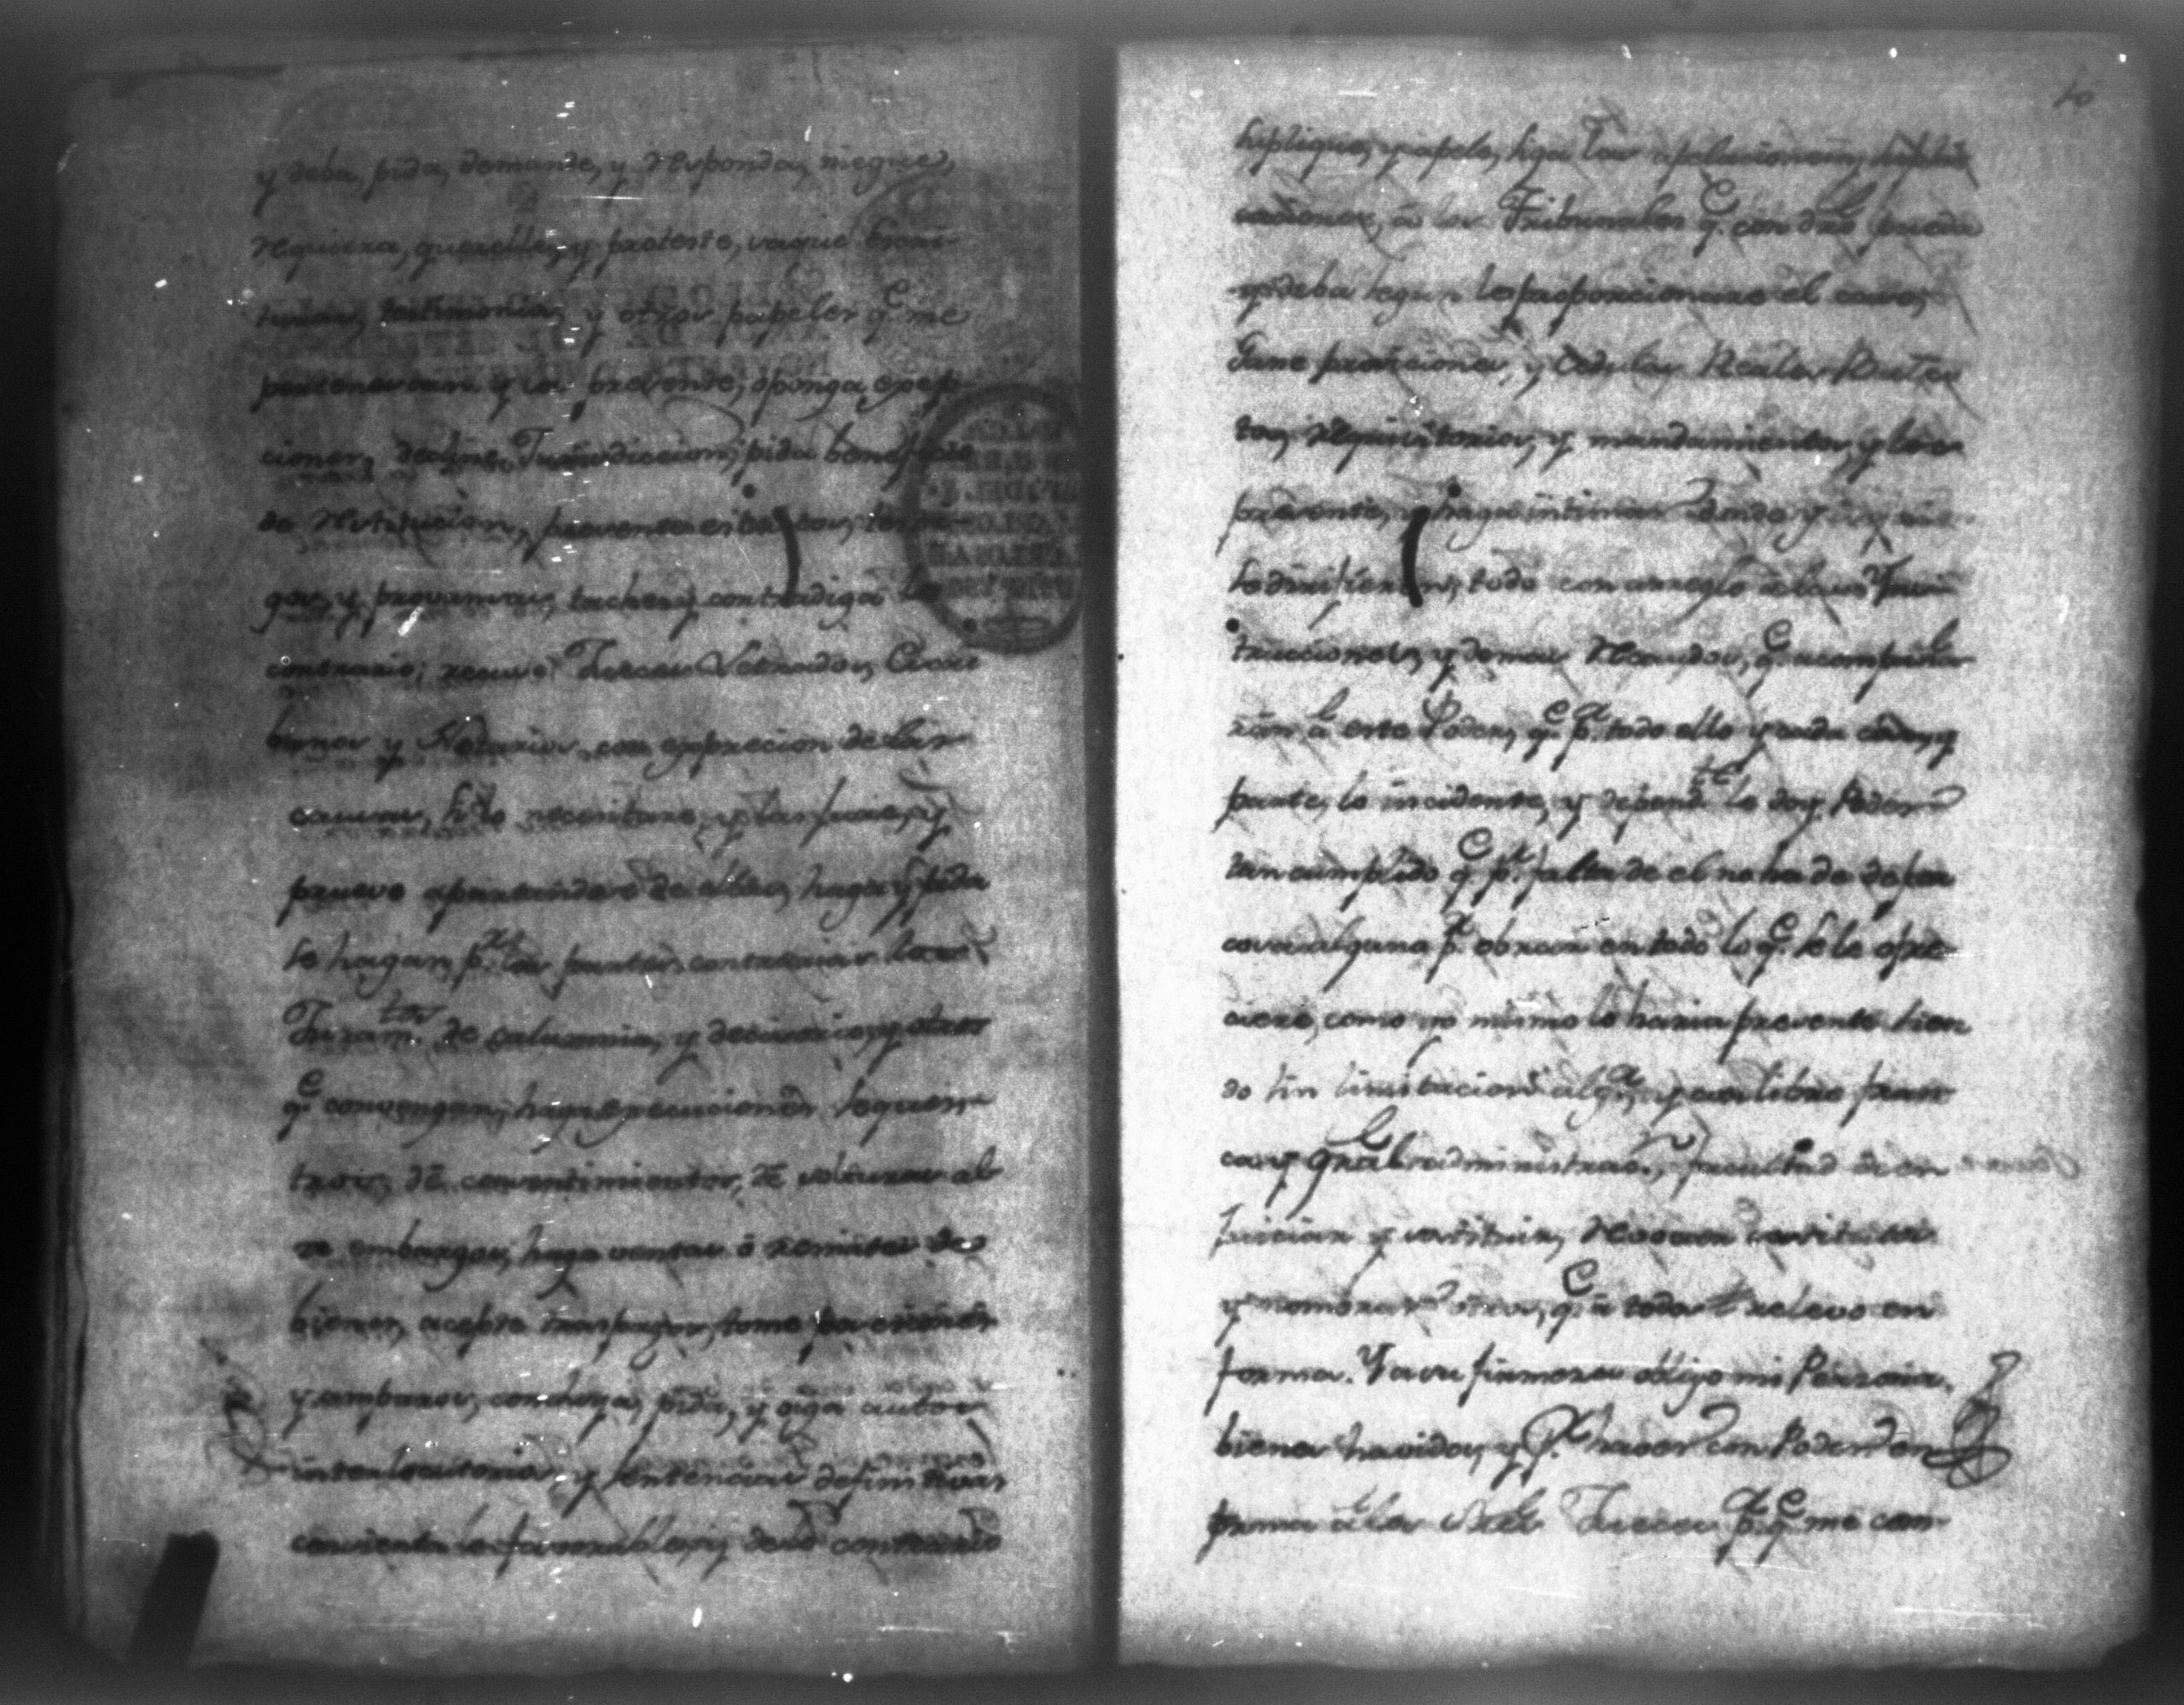 y deba, pida, demande, y Responda, niegue,
Requiera, querelle, y proteste, saque Escri-
turas, testimonios, y otros papeles q.e me
pertenescan y los presente, oponga, exep-
ciones, decline Jurisdiccion, pida beneficio
de Restitucion, presente escritos, testi-
gos, y provansas, tache y contradiga lo
contrario; recuse Jueces Letrados, Escri-
banos y Notarios, con exprecion de las
causas, si lo necesitare, y las jure, y
prueve apartandose de ellas, haga y pida
se hagan p.r las partes contrarias los
Juram.tos de calumnia, y decisorio, y otros
q.e convengan, haga execuciones, seques-
tros, dè consentimientos, de solturas al-
se embargos, haga ventas ò remates de
bienes, acepte traspasos, tome posecione
y amparos, concluya, pida, y oiga autos
interlocutorios, y sentencias definitivas
consienta lo favorable, y de lo contrario
10
suplique, y apele, siga las apelaciones, y supli-
caciones, à los Tribunales q.e con dro pueda
y deba segun le proporcionare el caso,
Gane proviciones, y Cedulas Reales
tas, requisitorios, y mandamientos, y los
presente, y haga intimar donde y à quie-
se dirifieren, todo con arreglo à las Yns-
trucciones, y demas Recaudos, q.e acompaña-
ràn à este Poder, q.e p.a todo ello y cada cosa, y
parte, lo incidente, y depend.te le doy Poder
tan cumplido q.e p.r falta de el no ha de dejar
cosa alguna p.r obrar en todo lo q.e se le ofre-
ciere, como yo mismo lo haria presente sien-
do sin limitacion alg.a, y con libre fran-
ca y gràl administrac.n, facultad de en-
juiciar y sostituir, Revocar sostitutos
y nombrar otros, q.e à todos relevo en
forma. Y a su firmeza obligo mi Persona,
bienes havidos, y p.r haver con Poderes en
forma à los Jueces p.a q.e me com-